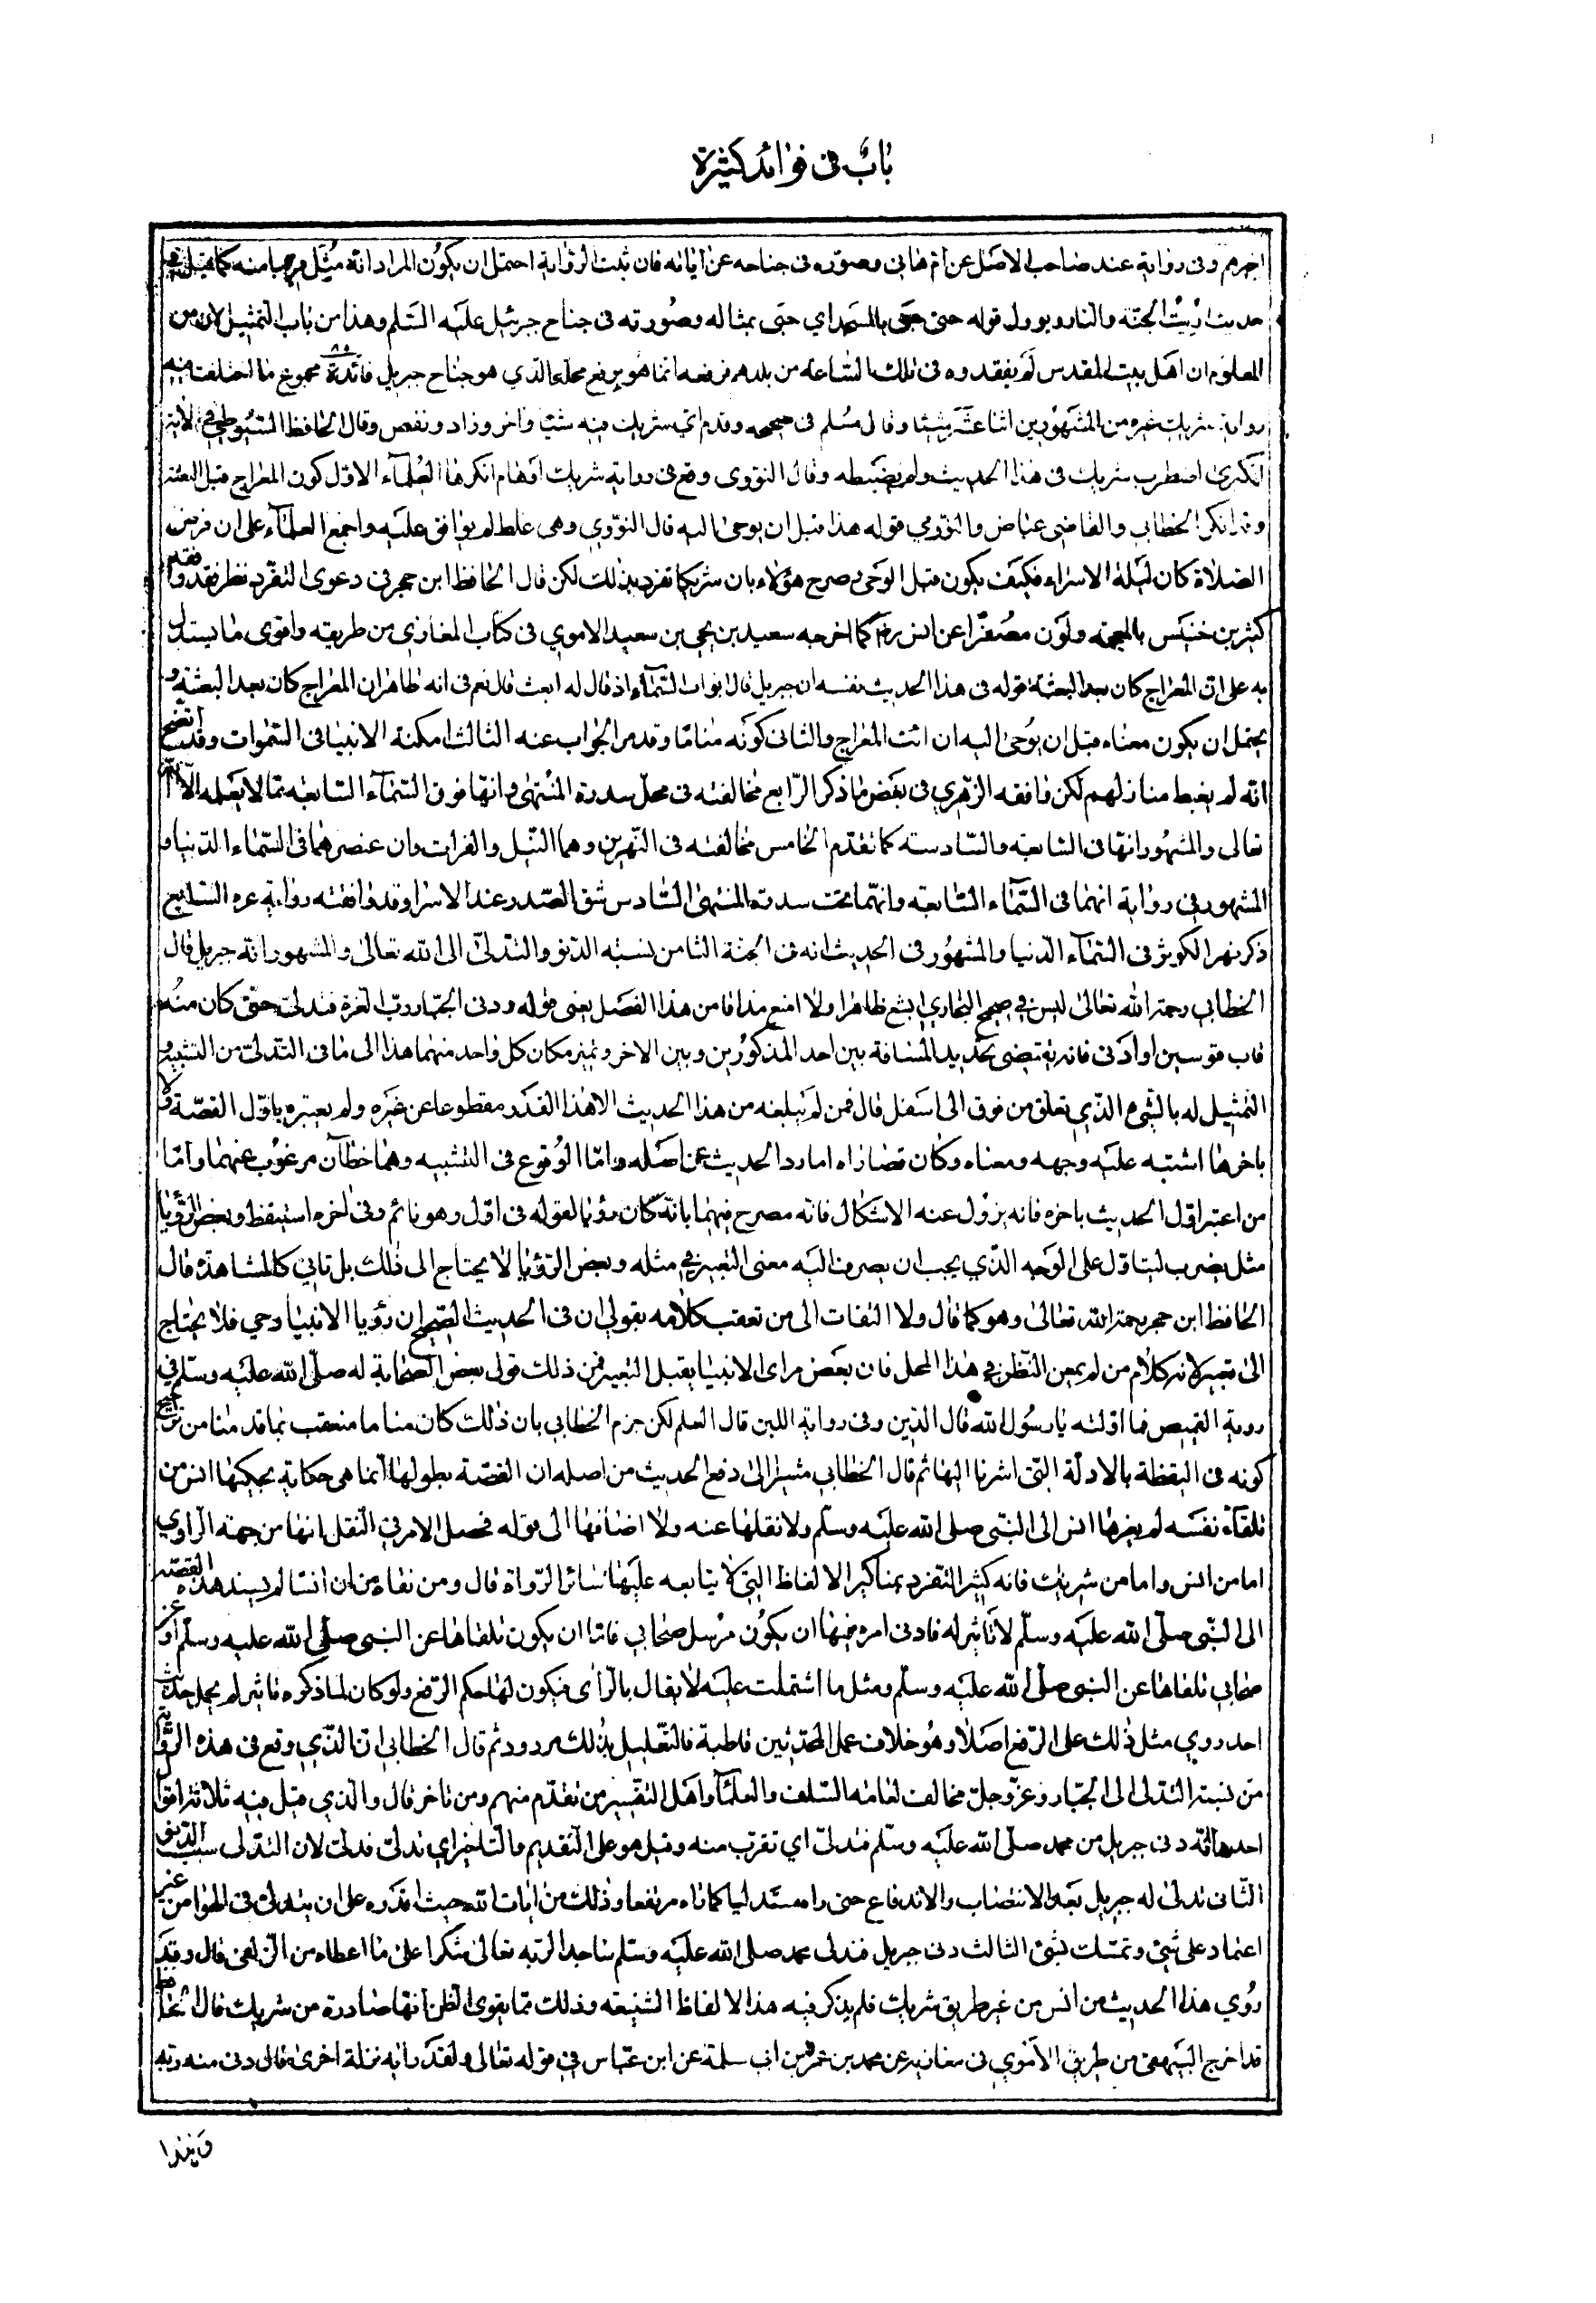 باب في فوائد كثيرة
اخبرهم وفي رواية عند صاحب الاصل عن ام هاني وصوره في جناحه عن اياته فان ثبت الرواية احتمل ان يكون المراد انه مثل قريبا منه كما قيل في
حديث اريت الجنة والنار ويوول قوله حتى جئ بالمسجد اي حتى بمثاله وصورته في جناح جبرئيل عليه السلم وهذا من باب التمثيل لان من
المعلوم ان اهل بيت المقدس لم يفقدوه في تلك الساعة من بلدهم فرفعه انما هو برفع محله الذي هو جناح جبريل فائدة مجموع ما اختلفت فيه
رواية شريك غيره من المشهورين اثنا عشر شيئا وقال مسلم في صحيحه وقدم اي شريك فيه شيئا واخر وزاد ونقص وقال الحافظ السيوطي في الاية
الكبرى اضطرب شريك في هذا الحديث ولم يضبطه وقال النووي وقع في رواية شريك اوهام انكرها العلماء الاول كون المعراج قبل البعثة
وقد انكر الخطابي والقاضي عياض والنووي قوله هذا قبل ان يوحى اليه قال النووي وهي غلط لم يوافق عليه واجمع العلماء على ان فرض
الصلاة كان ليلة الاسراء فكيف يكون قبل الوحي وصرح هؤلاء بان شريكا تفرد بذلك لكن قال الحافظ ابن حجر في دعوى التفرد نظر فقد وافقه
كثير بن خنيس بالمعجمة ونون مصغرا عن انس رض كما اخرجه سعيد بن يحيى بن سعيد الاموي في كتاب المغازي من طريقه واقوى ما يستدل
به على ان المعراج كان بعد البعثة قوله في هذا الحديث نفسه ان جبريل قال بواب السماء اذ قال له ابعث قال نعم في انه ظاهر ان المعراج كان بعد البعثة و
يحتمل ان يكون معناه قبل ان يوحى اليه ان ائت المعراج والثاني كونه مناما وقد مر الجواب عنه الثالث امكنة الانبيا في السموات وقد اتضح
انه لم يضبط منازلهم لكن وافقه الزهري في بعض ما ذكر الرابع مخالفته في محل سدرة المنتهى وانها فوق السماء السابعة مما لا يعلمه الا الله
تعالى والمشهور انها في السابعة والسادسة كما تقدم الخامس مخالفته في النهرين وهما النيل والفرات وان عنصرهما في السماء الدنيا و
المشهور في رواية انهما في السماء السابعة وانهما تحت سدرة المنتهى السادس شق الصدر عند الاسرا وقد وافقته رواية غيره السابع
ذكر نهر الكوثر في السماء الدنيا والمشهور في الحديث انه في الجنة الثامن نسبته الدنو والتدلي الى الله تعالى والمشهور انه جبريل قال
الخطابي رحمه الله تعالى ليس في صحيح البخاري ابشع ظاهرا ولا امنع مذاقا من هذا الفصل يعني قوله ودنى الجبار رب العزة فتدلى حتى كان منه
قاب قوسين او ادنى فانه يقتضي تحديد المسافة بين احد المذكورين وبين الاخر وتميز مكان كل واحد منهما هذا الى ما في التدلي من التشبيه و
التمثيل له بالشئ الذي تعلق من فوق الى اسفل قال فمن لم يبلغه من هذا الحديث الا هذا القدر مقطوعا عن غيره ولم يعتبره باول القصة ولا
باخرها اشتبه عليه وجهه ومعناه وكان قصاراه اما رد الحديث عن اصله واما الوقوع في التشبيه وهما خطآن مرغوب عنهما واما
من اعتبر اول الحديث باخره فانه يزول عنه الاشكال فانه مصرح فيهما بانه كان رؤيا لقوله في اول وهو نائم وفي اخره استيقظ وبعض الرؤيا
مثل يضرب ليتاول على الوجه الذي يجب ان يصرف اليه معنى التعبير في مثله وبعض الرؤيا لا يحتاج الى ذلك بل تاتي كالمشاهدة قال
الحافظ ابن حجر رحمه الله تعالى وهو كما قال ولا التفات الى من تعقب كلامه بقولي ان في الحديث الصحيح ان رؤيا الانبيا وحي فلا يحتاج
الى تعبير لانه كلام من لم يمعن النظر في هذا المحل فان بعض مراى الانبيا يقبل التعبير فمن ذلك قول بعض الصحابة له صلى الله عليه وسلم في
روية القميص فما اولته يا رسول الله قال الدين وفي رواية اللبن قال العلم لكن جزم الخطابي بان ذلك كان مناما متعقب بما قدمنا من ترجيح
كونه في اليقظة بالادلة التي اشرنا اليها ثم قال الخطابي مشيرا الى دفع الحديث من اصله ان القصة بطولها انما هي حكاية يحكيها انس من
تلقاء نفسه لم يعزها انس الى النبي صلى الله عليه وسلم ولا نقلها عنه ولا اضافها الى قوله فحصل الامر في النقل انها من جهة الراوي
اما من انس واما من شريك فانه كثير التفرد بمناكير الالفاظ التي لا يتابعه عليها سائر الرواة قال ومن نفاه من ان انسا لم يسند هذه القصة
الى النبي صلى الله عليه وسلم لا تاثير له فادنى امره فيها ان يكون مرسل صحابي فاما ان يكون تلقاها عن النبي صلى الله عليه وسلم او عن
صحابي تلقاها عن النبي صلى الله عليه وسلم ومثل ما اشتملت عليه لا يقال بالراى فيكون لها حكم الرفع ولو كان لما ذكره تاثير لم يحمل حديث
احد روي مثل ذلك على الرفع اصلا وهو خلاف عمل المحدثين قاطبة فالتعليل بذلك مردود ثم قال الخطابي ان الذي وقع في هذه الرواية
من نسبة التدلي الى الجبار وعز وجل مخالف لعامة السلف والعلماء واهل التفسير من تقدم منهم ومن تاخر قال والذي قيل فيه ثلاثة اقوال
احدها انه دنى جبريل من محمد صلى الله عليه وسلم فتدلى اي تقرب منه وقيل هو على التقديم والتاخير اي تدلى فدلى لان التدلي سبب الدنو
الثاني تدلى له جبريل بعد الانتصاب والاندفاع حتى راه متدليا كما راه مرتفعا وذلك من ايات الله حيث اقدره على ان يتدلى في الهوا من غير
اعتماد على شئ وتمسك بشئ الثالث دنى جبريل فتدلى محمد صلى الله عليه وسلم ساجدا لربه تعالى شكرا على ما اعطاه من الزلفى قال وقد
روي هذا الحديث من انس من غير طريق شريك فلم يذكر فيه هذا الالفاظ الشنيعة وذلك مما يقوى الظن انها صادرة من شريك قال الحافظ
قد اخرج البيهقي من طريق الاموي في مغازيه عن محمد بن عمرو بن ابي سلمة عن ابن عباس في قوله تعالى ولقد راه نزلة اخرى قال دنى منه ربه